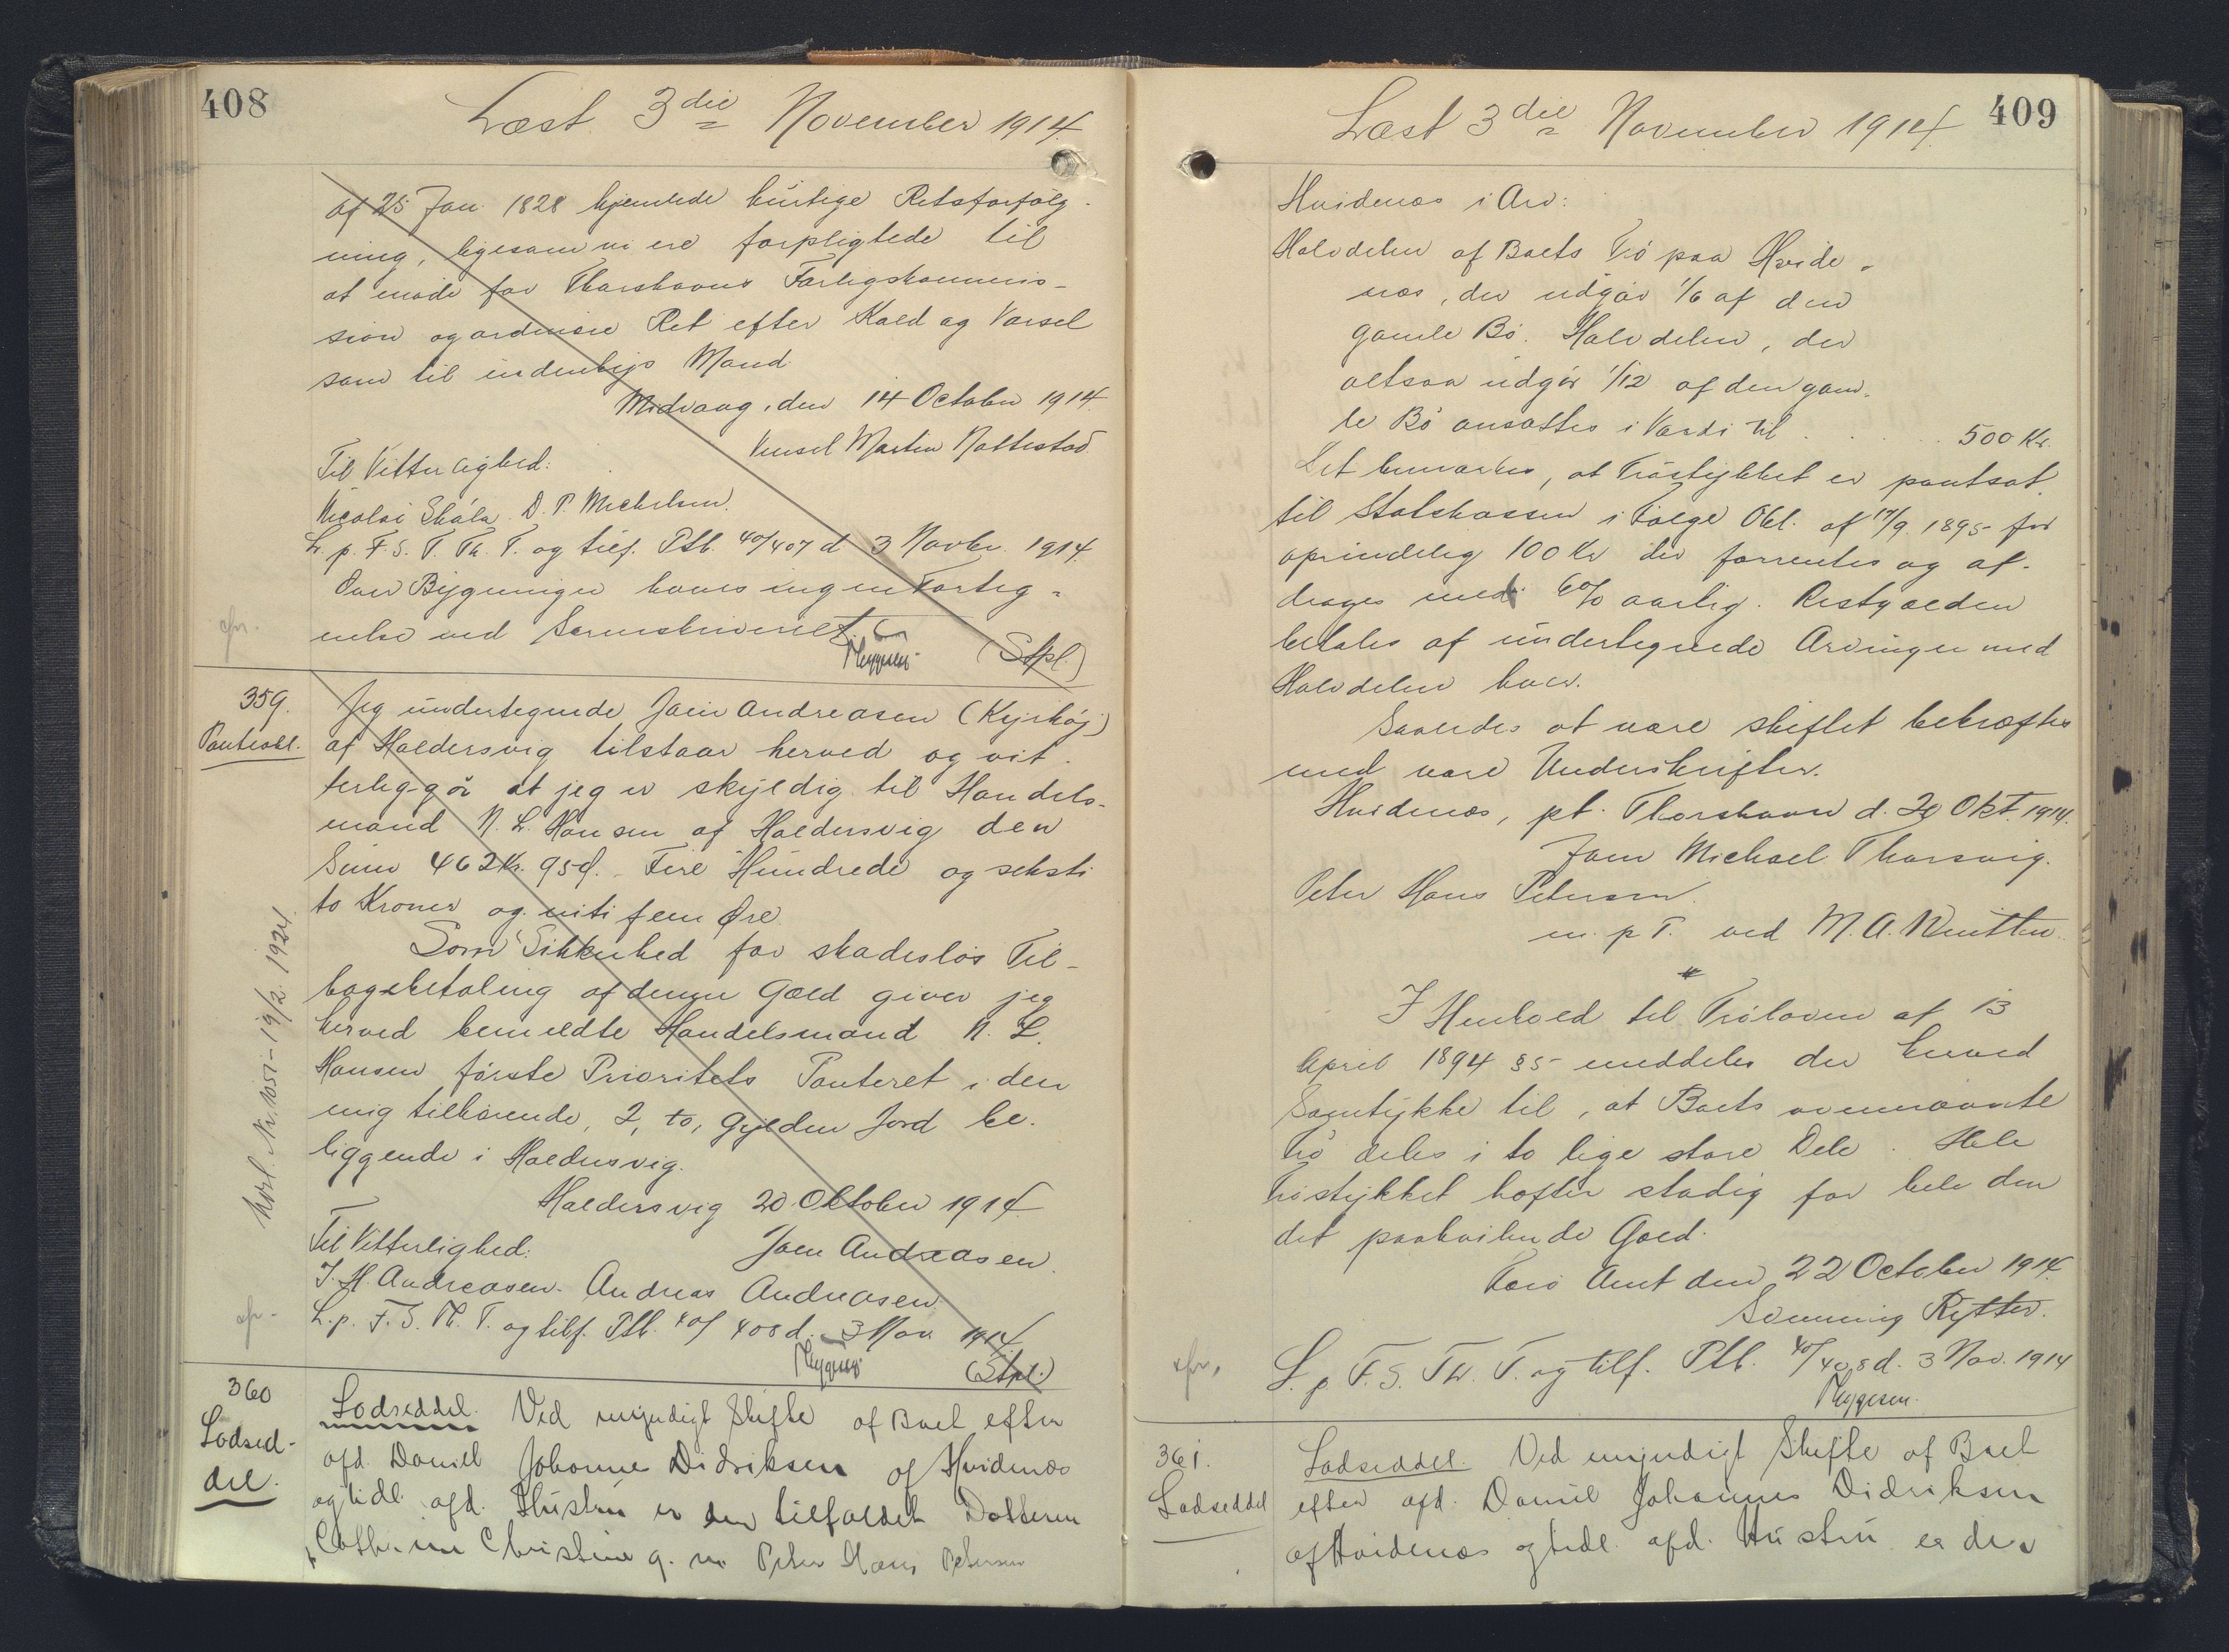 408
Læst 3die November 1914.
af 25 Jan. 1828 hjemlede hurtige Retsforfølg-
ning, ligesom vi ere forpligtede til
at møde for Thorshavns Forligskommis-
sion og ordinære Ret efter Kald og Varsel
som til indenbys Mand.
Midvaag, den 14 October 1914.
Til Vitterlighed:
Vensel Martin Nattestad
Nicolai Skála. D. P. Michelsen.
L. p. F. S. T. Th. T. og tilf. Ptb. 40/407 d 3 Novbr. 1914.
Over Bygninger haves ingen Forteg-
nelse ved Sorenskriveriet.
(Stpl.)
359.
Panteobl.
Jeg undertegnede Joen Andreasen (Kyrhøj)
af Haldersvig tilstaar herved og vit-
terlig-gör at jeg er skyldig til Handels-
mand N. L. Hansen af Haldersvig den
Sum 462 Kr. 95 Ø. Fire Hundrede og seksti
to Kroner og niti fem Øre.
Som Sikkerhed for skadesløs Til-
bagebetaling af denne Gæld giver jeg
herved bemeldte Handelsmand N. L.
Hansen første Prioritets Panteret i den
mig tilhørende, 2, to, Gylden Jord be-
liggende i Haldersvig.
Haldersvig 20 Oktober 1914.
Til Vitterlighed:
Joen Andreasen.
J. H. Andreasen. Andreas Andreasen.
L. p. F. S. Th. T. og tilf. Ptb. 40/408 d. 3 Nov 1914.
(Stpl.)
360
Lodsed-
del.
Lodseddel. Ved myndigt Skifte af Boet efter
afd. Daniel Johannes Didriksen af Hvidenæs
og tidl. afd. Hustru er der tilfaldet Datteren
Cathrine Christine g. m. Peter Hans Petersen
409
Læst 3die November 1914.
Hvidenæs i Arv:
Halvdelen af Boets Trö paa Hvide-
næs, der udgør 1/6 af den
gamle Bö. Halvdelen, der
altsaa udgör 1/12 af den gam-
le Bö ansættes i Værdi til . . . . . 500 Kr.
Det bemærkes, at Tröstykket er pantsat
til Statskassen i Følge Obl. af 17/9. 1895 for
oprindelig 100 Kr der forrentes og af-
drages med 6% aarlig. Restgælden
betales af undertegnede Arvinger med
Halvdelen hver.
Saaledes at være skiftet bekræftes
med vore Underskrifter.
Hvidenæs, pt. Thorshavn d. 20 Okt. 1914.
Joen Michael Thorsvig.
Peter Hans Petersen.
m. p. T. ved M. A. Winther.
I Henhold til Tröloven af 13
April 1894 § 5 meddeles der herved
Samtykke til, at Boets ovennævnte
Trö deles i to lige store Dele. Hele
Tröstykket hæfter stadig for hele den
det paahvilende Gæld.
Færö Amt den 22 October 1914.
Svenning Rytter.
L. p. F. S. Th. T. og tilf. Ptb. 40/408 d. 3 Nov. 1914
361.
Lodseddel
Lodseddel. Ved myndigt Skifte af Boet
efter afd. Daniel Johannes Didriksen
af Hvidenæs og tidl. afd. Hustru er der